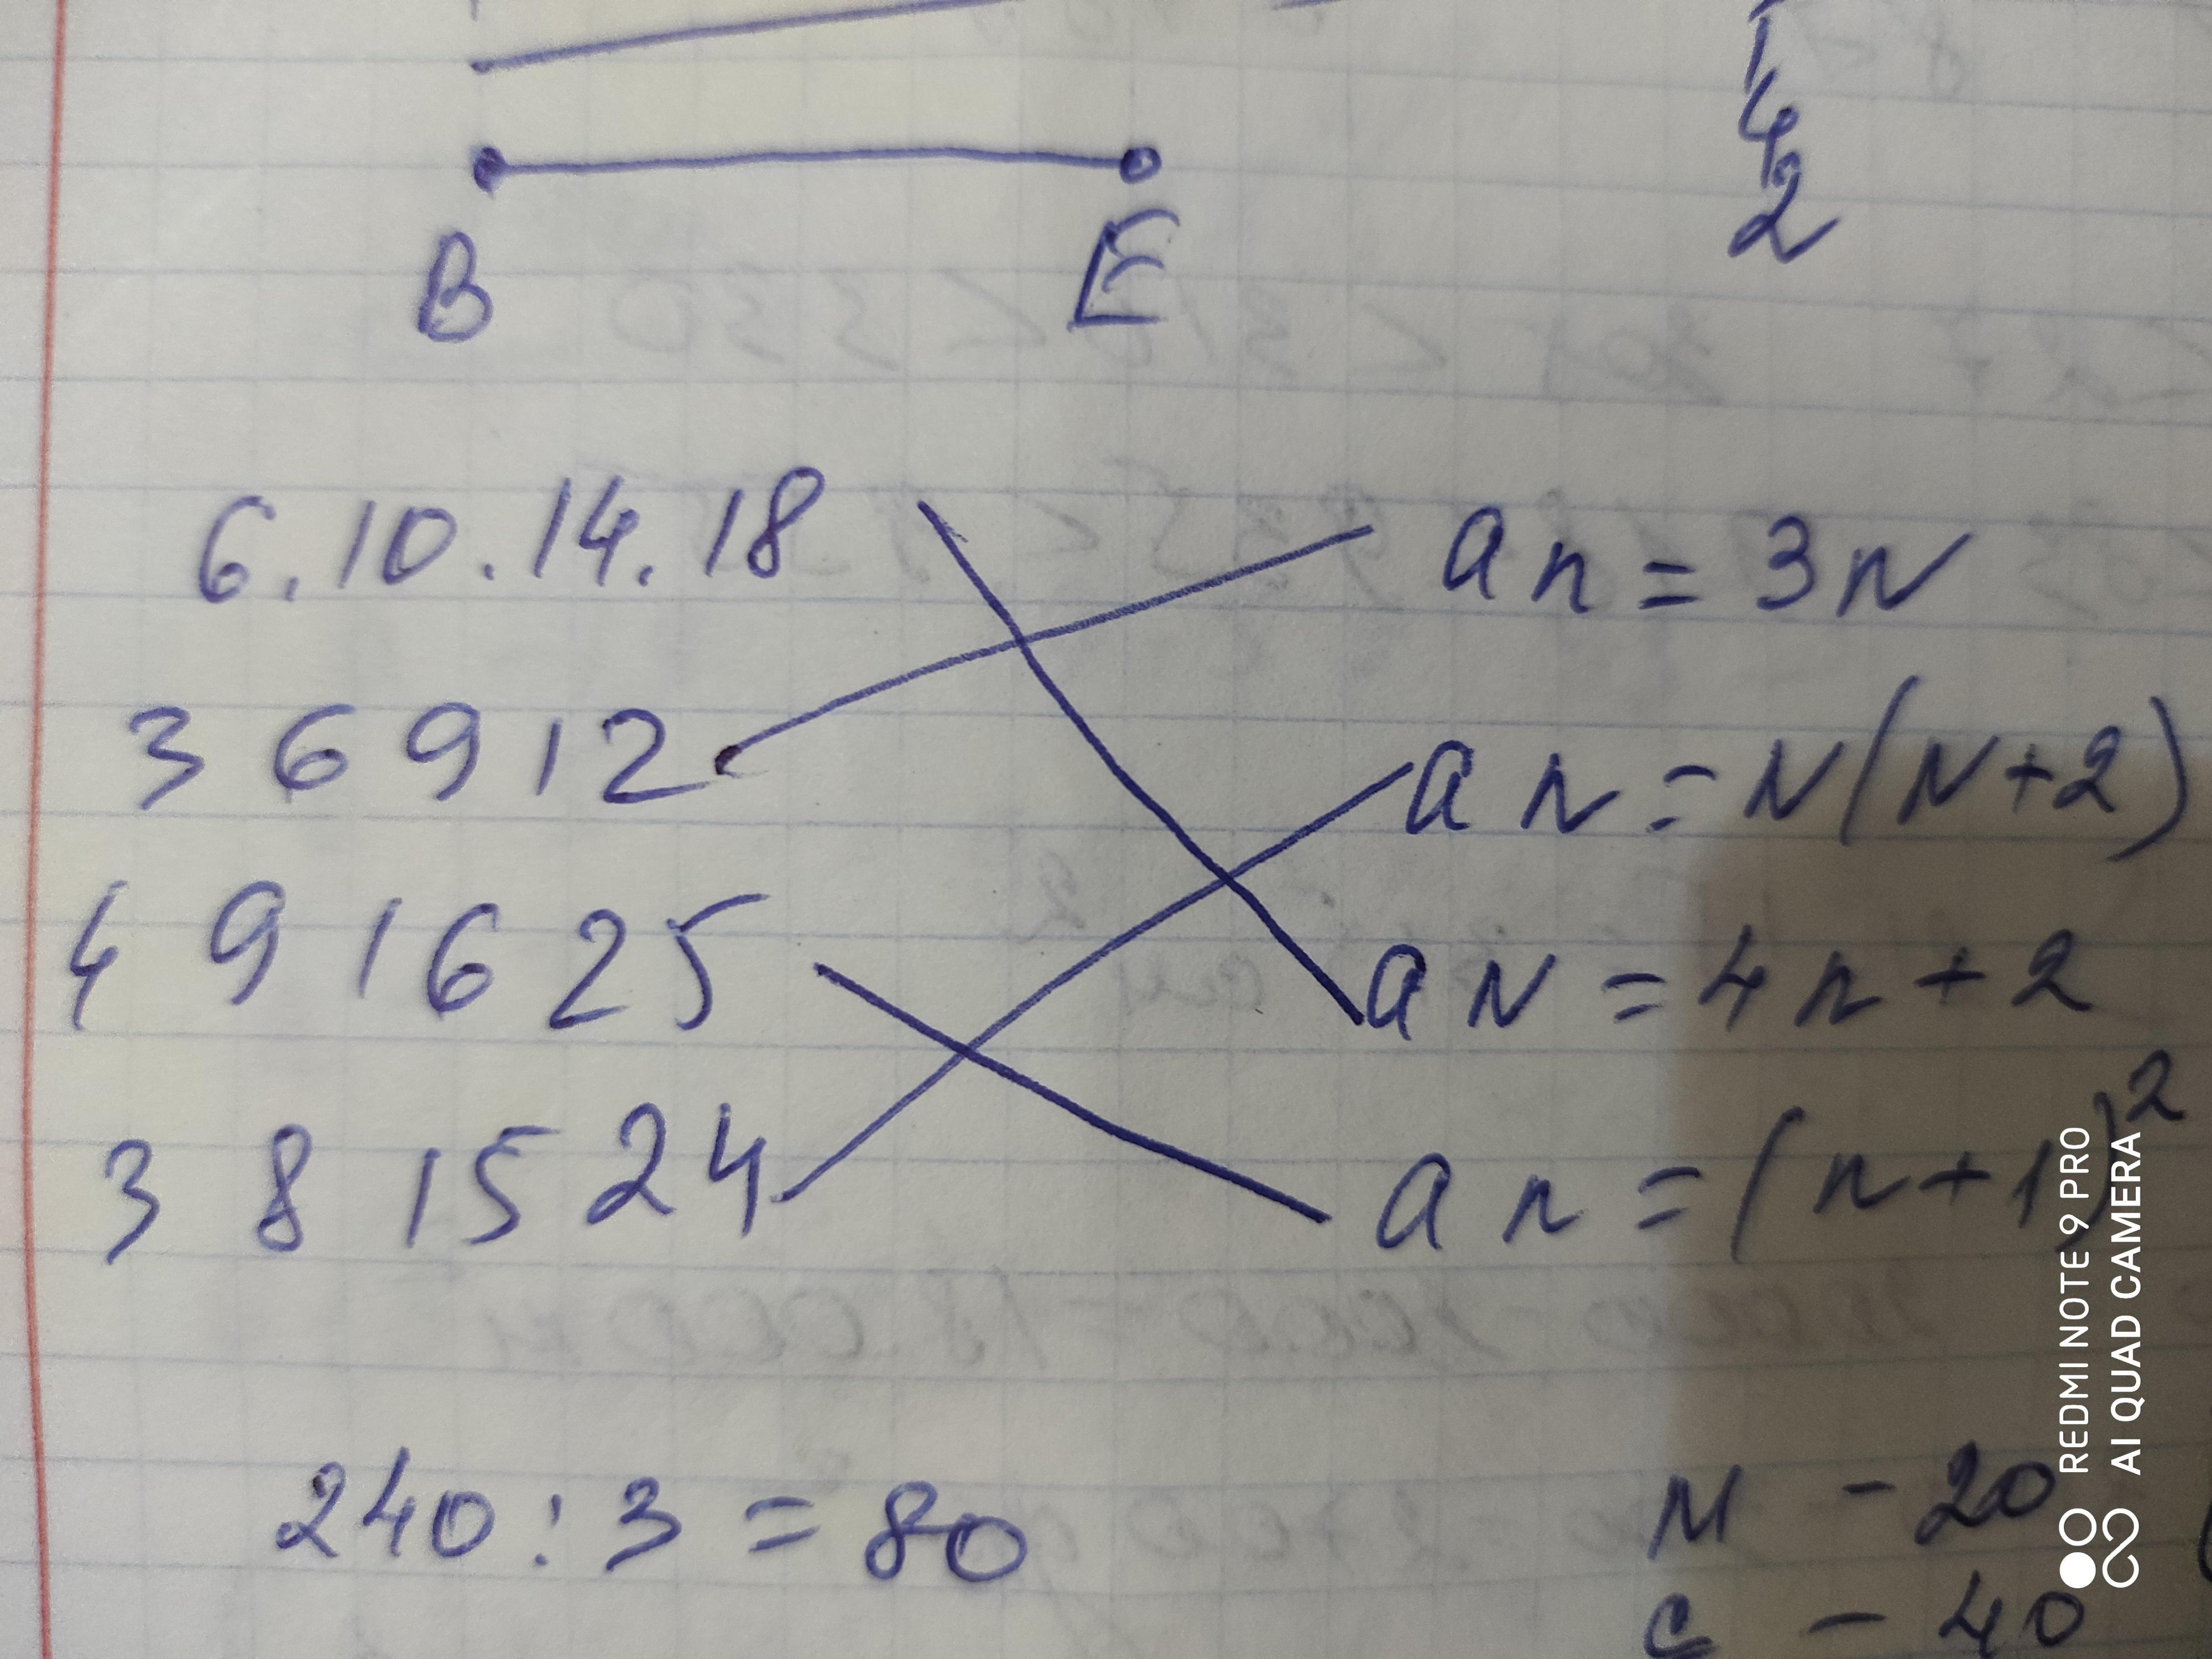 4
2
B E
6.10.14.18 an = 3n
3 6 9 12 an = n(n+2)
4 9 16 25 an = 4n + 2
3 8 15 24 an = (n+1)²
240 : 3 = 80
M - 20
C - 40
REDMI NOTE 9 PRO
AI QUAD CAMERA